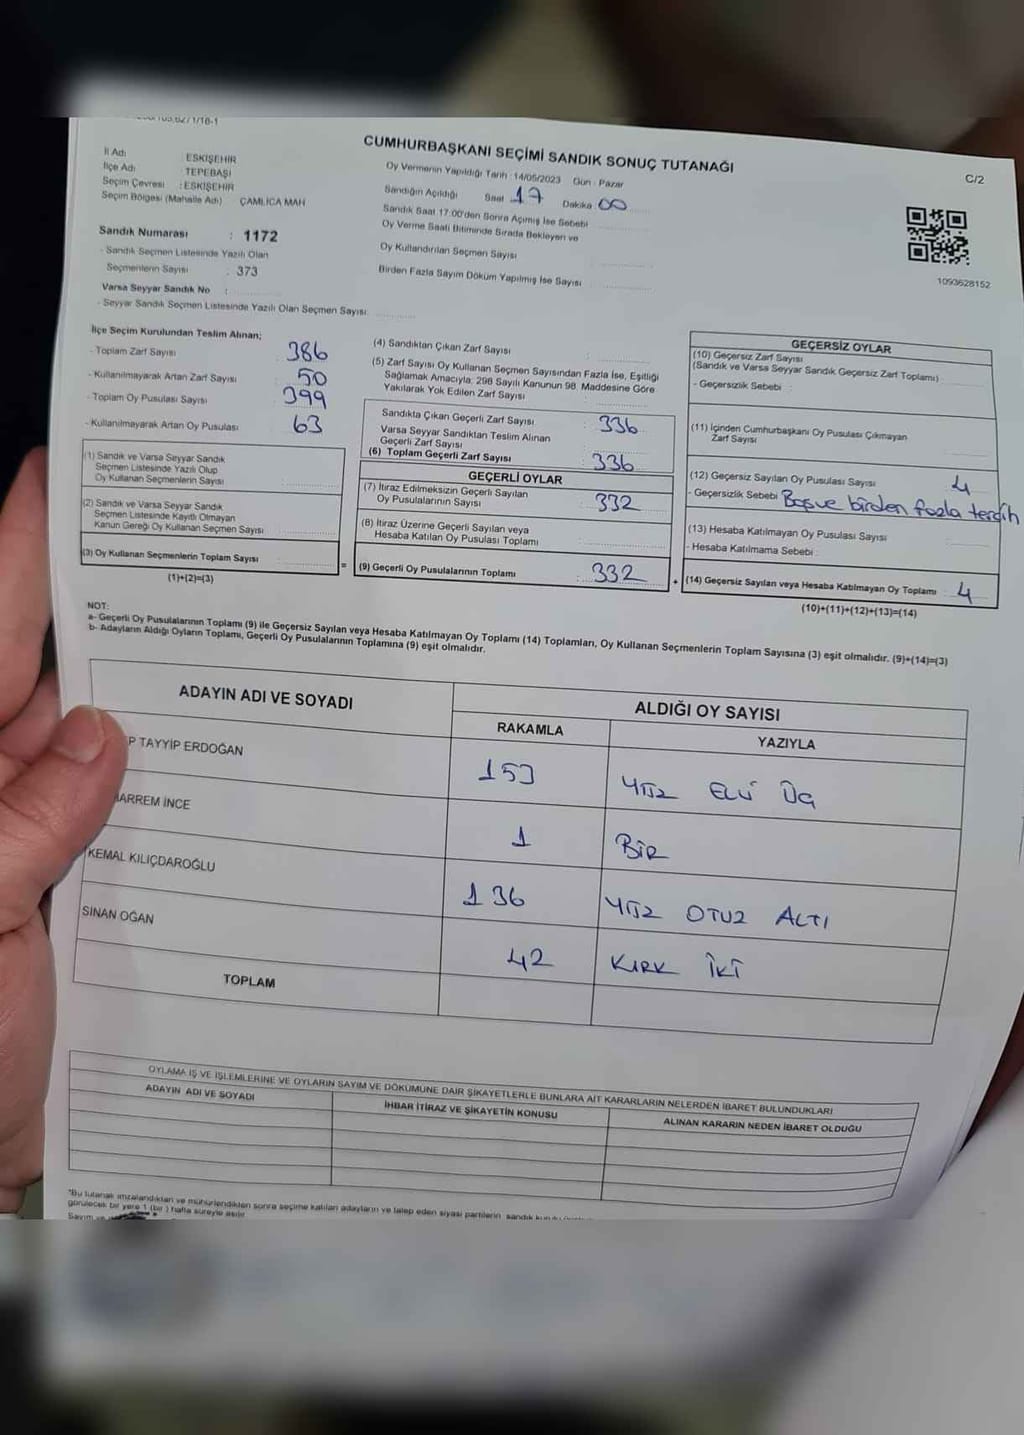 CUMHURBAŞKANI SEÇİMİ SANDIK SONUÇ TUTANAĞI
C/2
İl Adı : ESKİŞEHİR
İlçe Adı : TEPEBAŞI
Seçim Çevresi : ESKİŞEHİR
Seçim Bölgesi (Mahalle Adı) ÇAMLICA MAH
Sandık Numarası : 1172
- Sandık Seçmen Listesinde Yazılı Olan
Seçmenlerin Sayısı : 373
Varsa Seyyar Sandık No :
- Seyyar Sandık Seçmen Listesinde Yazılı Olan Seçmen Sayısı:
Oy Vermenin Yapıldığı Tarih :14/05/2023 Gün : Pazar
Sandığın Açıldığı Saat 17 Dakika 00
Sandık Saat 17:00'den Sonra Açımış İse Sebebi
Oy Verme Saati Bitiminde Sırada Bekleyen ve
Oy Kullandırılan Seçmen Sayısı
Birden Fazla Sayım Döküm Yapılmış İse Sayısı
1093628152
İlçe Seçim Kurulundan Teslim Alınan;
- Toplam Zarf Sayısı 386
- Kullanılmayarak Artan Zarf Sayısı 50
- Toplam Oy Pusulası Sayısı 399
- Kullanılmayarak Artan Oy Pusulası 63
(1) Sandık ve Varsa Seyyar Sandık
Seçmen Listesinde Yazılı Olup
Oy Kullanan Seçmenlerin Sayısı :
(2) Sandık ve Varsa Seyyar Sandık
Seçmen Listesinde Kayıtlı Olmayan
Kanun Gereği Oy Kullanan Seçmen Sayısı :
(3) Oy Kullanan Seçmenlerin Toplam Sayısı :
(1)+(2)=(3)
=
(4) Sandıktan Çıkan Zarf Sayısı :
(5) Zarf Sayısı Oy Kullanan Seçmen Sayısından Fazla İse, Eşitliği
Sağlamak Amacıyla; 298 Sayılı Kanunun 98. Maddesine Göre
Yakılarak Yok Edilen Zarf Sayısı :
Sandıkta Çıkan Geçerli Zarf Sayısı : 336
Varsa Seyyar Sandıktan Teslim Alınan
Geçerli Zarf Sayısı :
(6) Toplam Geçerli Zarf Sayısı : 336
GEÇERLİ OYLAR
(7) İtiraz Edilmeksizin Geçerli Sayılan
Oy Pusulalarının Sayısı : 332
(8) İtiraz Üzerine Geçerli Sayılan veya
Hesaba Katılan Oy Pusulası Toplamı :
(9) Geçerli Oy Pusulalarının Toplamı : 332
+
GEÇERSİZ OYLAR
(10) Geçersiz Zarf Sayısı
(Sandık ve Varsa Seyyar Sandık Geçersiz Zarf Toplamı)
- Geçersizlik Sebebi :
(11) İçinden Cumhurbaşkanı Oy Pusulası Çıkmayan
Zarf Sayısı
(12) Geçersiz Sayılan Oy Pusulası Sayısı : 4
- Geçersizlik Sebebi Boş ve birden fazla tercih
(13) Hesaba Katılmayan Oy Pusulası Sayısı
- Hesaba Katılmama Sebebi :
(14) Geçersiz Sayılan veya Hesaba Katılmayan Oy Toplamı : 4
(10)+(11)+(12)+(13)=(14)
NOT:
a- Geçerli Oy Pusulalarının Toplamı (9) ile Geçersiz Sayılan veya Hesaba Katılmayan Oy Toplamı (14) Toplamları, Oy Kullanan Seçmenlerin Toplam Sayısına (3) eşit olmalıdır. (9)+(14)=(3)
b- Adayların Aldığı Oyların Toplamı, Geçerli Oy Pusulalarının Toplamına (9) eşit olmalıdır.
ADAYIN ADI VE SOYADI
ALDIĞI OY SAYISI
RAKAMLA YAZIYLA
P TAYYİP ERDOĞAN 153 YÜZ ELLİ ÜÇ
ARREM İNCE 1 BİR
KEMAL KILIÇDAROĞLU 136 YÜZ OTUZ ALTI
SİNAN OĞAN 42 KIRK İKİ
TOPLAM
OYLAMA İŞ VE İŞLEMLERİNE VE OYLARIN SAYIM VE DÖKÜMÜNE DAİR ŞİKAYETLERLE BUNLARA AİT KARARLARIN NELERDEN İBARET BULUNDUKLARI
ADAYIN ADI VE SOYADI
İHBAR İTİRAZ VE ŞİKAYETİN KONUSU
ALINAN KARARIN NEDEN İBARET OLDUĞU
*Bu tutanak imzalandıktan ve mühürlendikten sonra seçime katılan adayların ve talep eden siyasi partilerin sandık kurulu
görülecek bir yere 1 (bir ) hafta süreyle asılır.
Sayım ve